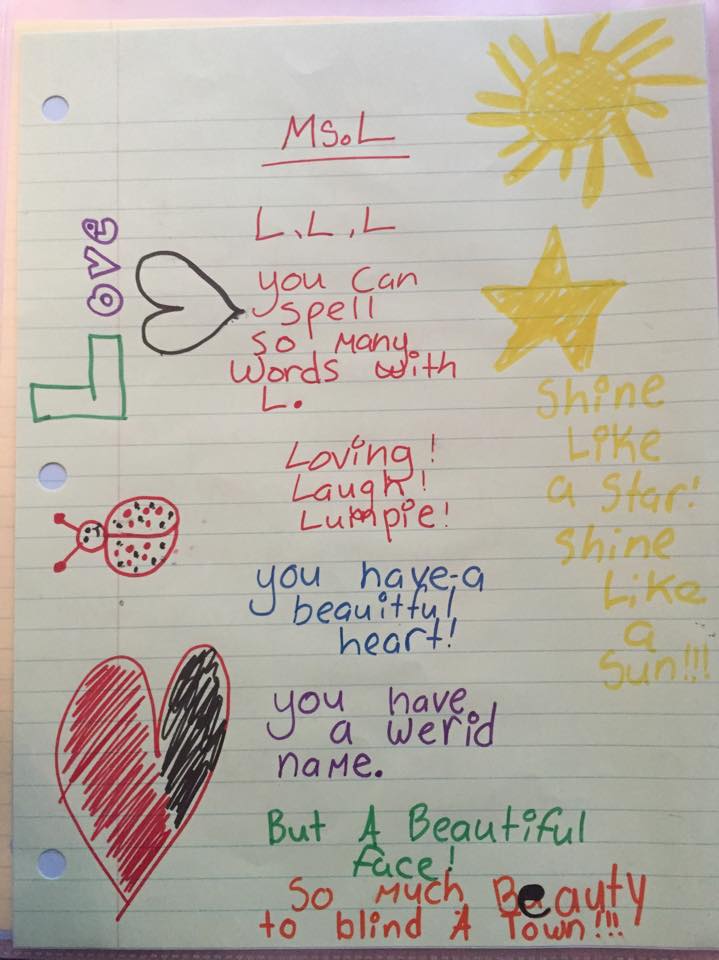 Ms.L
L, L, L
you can
spell
so many
words with
L.
Loving!
Laugh!
Lumpie!
you have a
beauitful
heart!
you have
a werid
name.
But A Beautiful
face!
So much Beauty
to blind A Town!!!
Love
Shine
Like
a Star!
Shine
Like
a
Sun!!!